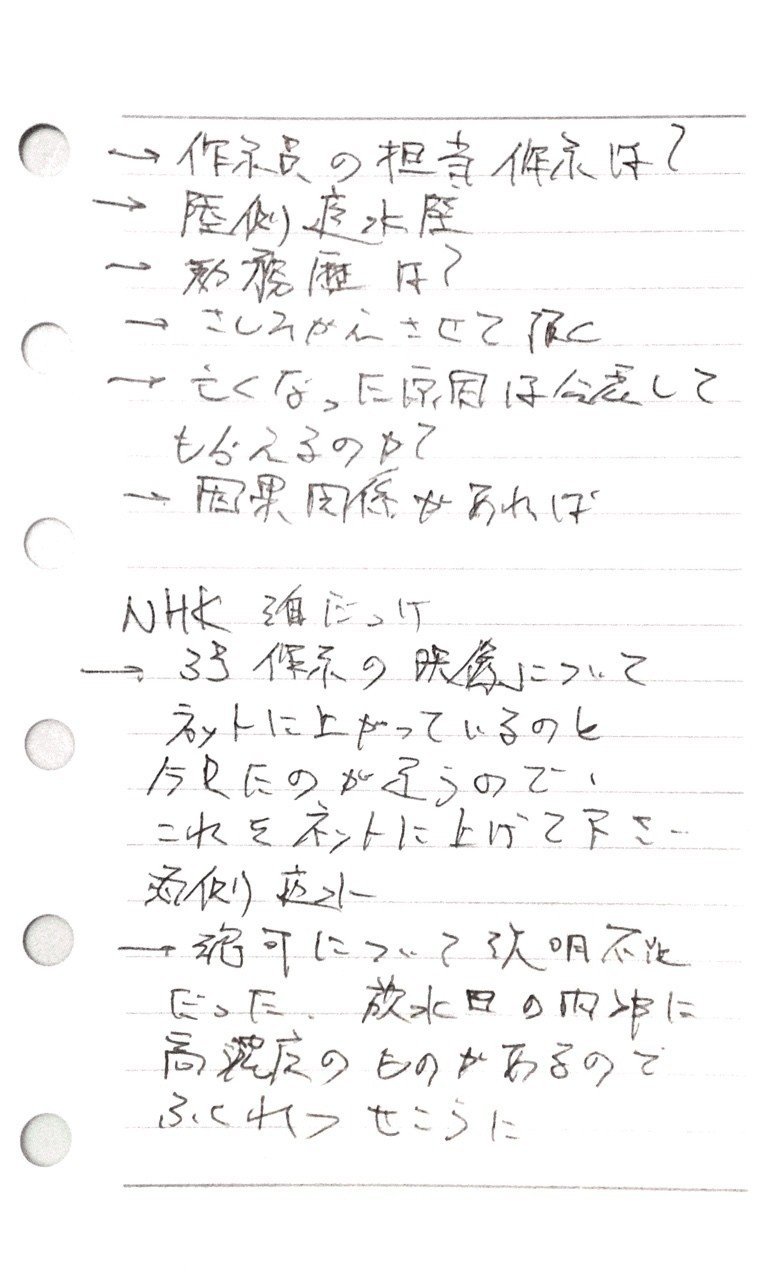 → 作業員の担当作業は?
→ 陸側遮水壁
→ 勤務歴は?
→ さしひかえさせて頂く
→ 亡くなった原因は公表して
もらえるのか?
→ 因果関係があれば
NHK 
→ 3号作業の映像について
ネットに上がっているのと
今見たのが違うので、
これをネットに上げて下さー
海側遮水
→ 認可について説明不足
だった、放水口の内外に
高濃度のものがあるので